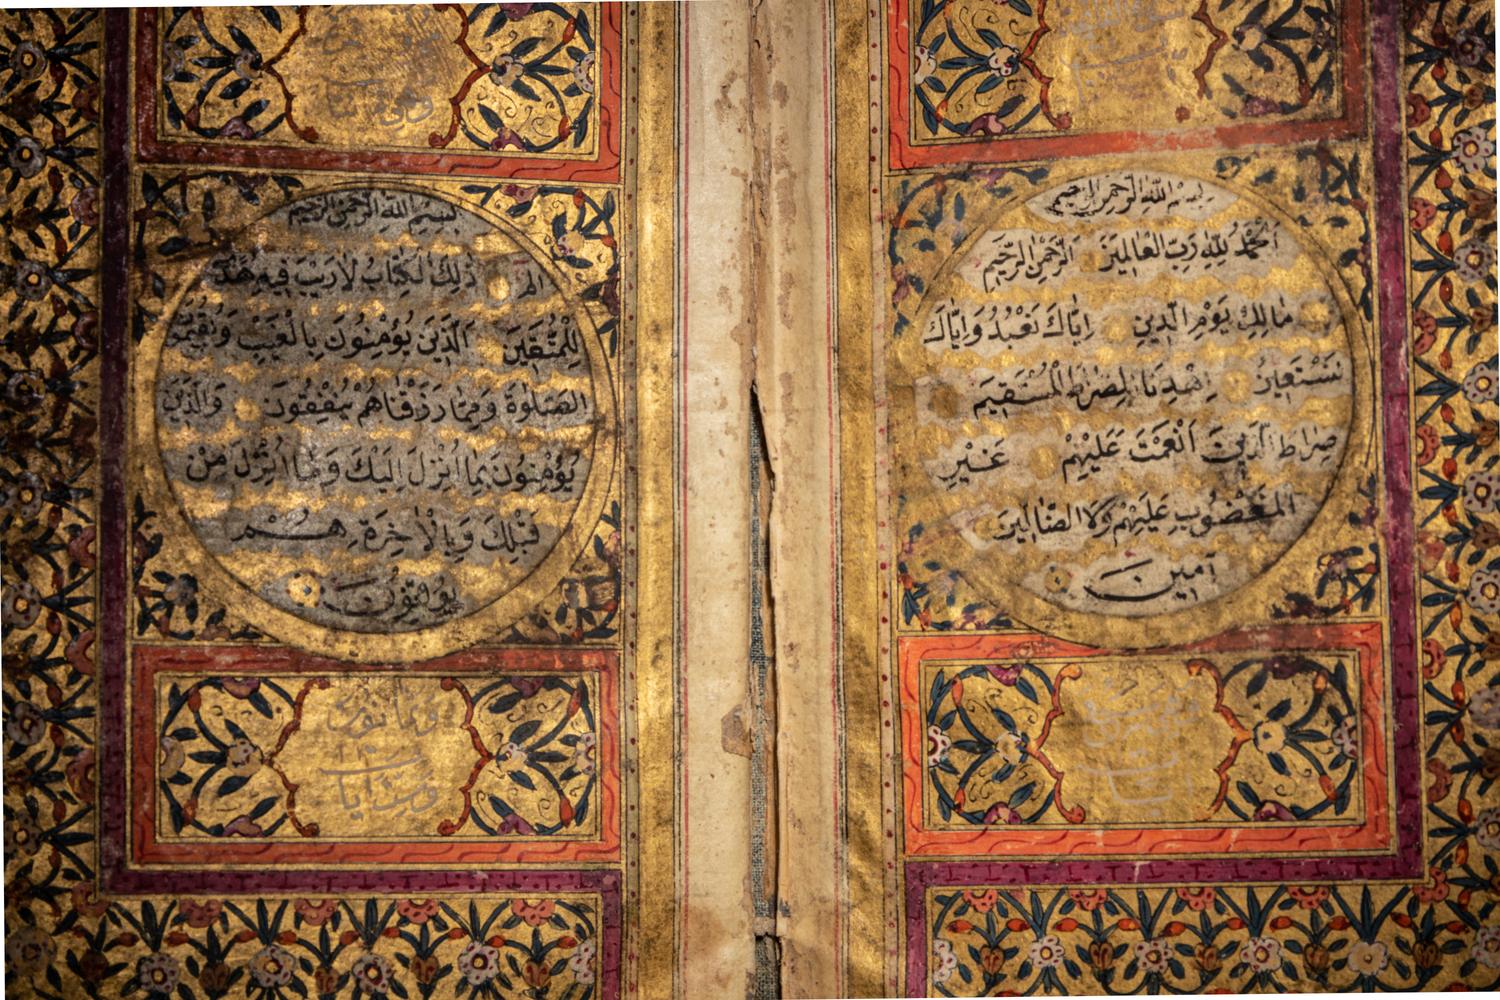 بِسْمِ اللّٰهِ الرَّحْمٰنِ الرَّحِيمِ
اَلْحَمْدُ لِلّٰهِ رَبِّ الْعَالَمِينَ الرَّحْمٰنِ الرَّحِيمِ
مَالِكِ يَوْمِ الدِّينِ اِيَّاكَ نَعْبُدُ وَاِيَّاكَ
نَسْتَعِينُ اِهْدِنَا الصِّرَاطَ الْمُسْتَقِيمَ
صِرَاطَ الَّذِينَ اَنْعَمْتَ عَلَيْهِمْ غَيْرِ
الْمَغْضُوبِ عَلَيْهِمْ وَلَا الضَّالِّينَ
اٰمِينَ
بِسْمِ اللّٰهِ الرَّحْمٰنِ الرَّحِيمِ
الم ذٰلِكَ الْكِتَابُ لَا رَيْبَ فِيهِ هُدًى
لِلْمُتَّقِينَ اَلَّذِينَ يُؤْمِنُونَ بِالْغَيْبِ وَيُقِيمُونَ
الصَّلٰوةَ وَمِمَّا رَزَقْنَاهُمْ يُنْفِقُونَ وَالَّذِينَ
يُؤْمِنُونَ بِمَا اُنْزِلَ اِلَيْكَ وَمَا اُنْزِلَ مِنْ
قَبْلِكَ وَبِالْاٰخِرَةِ هُمْ
يُوقِنُونَ